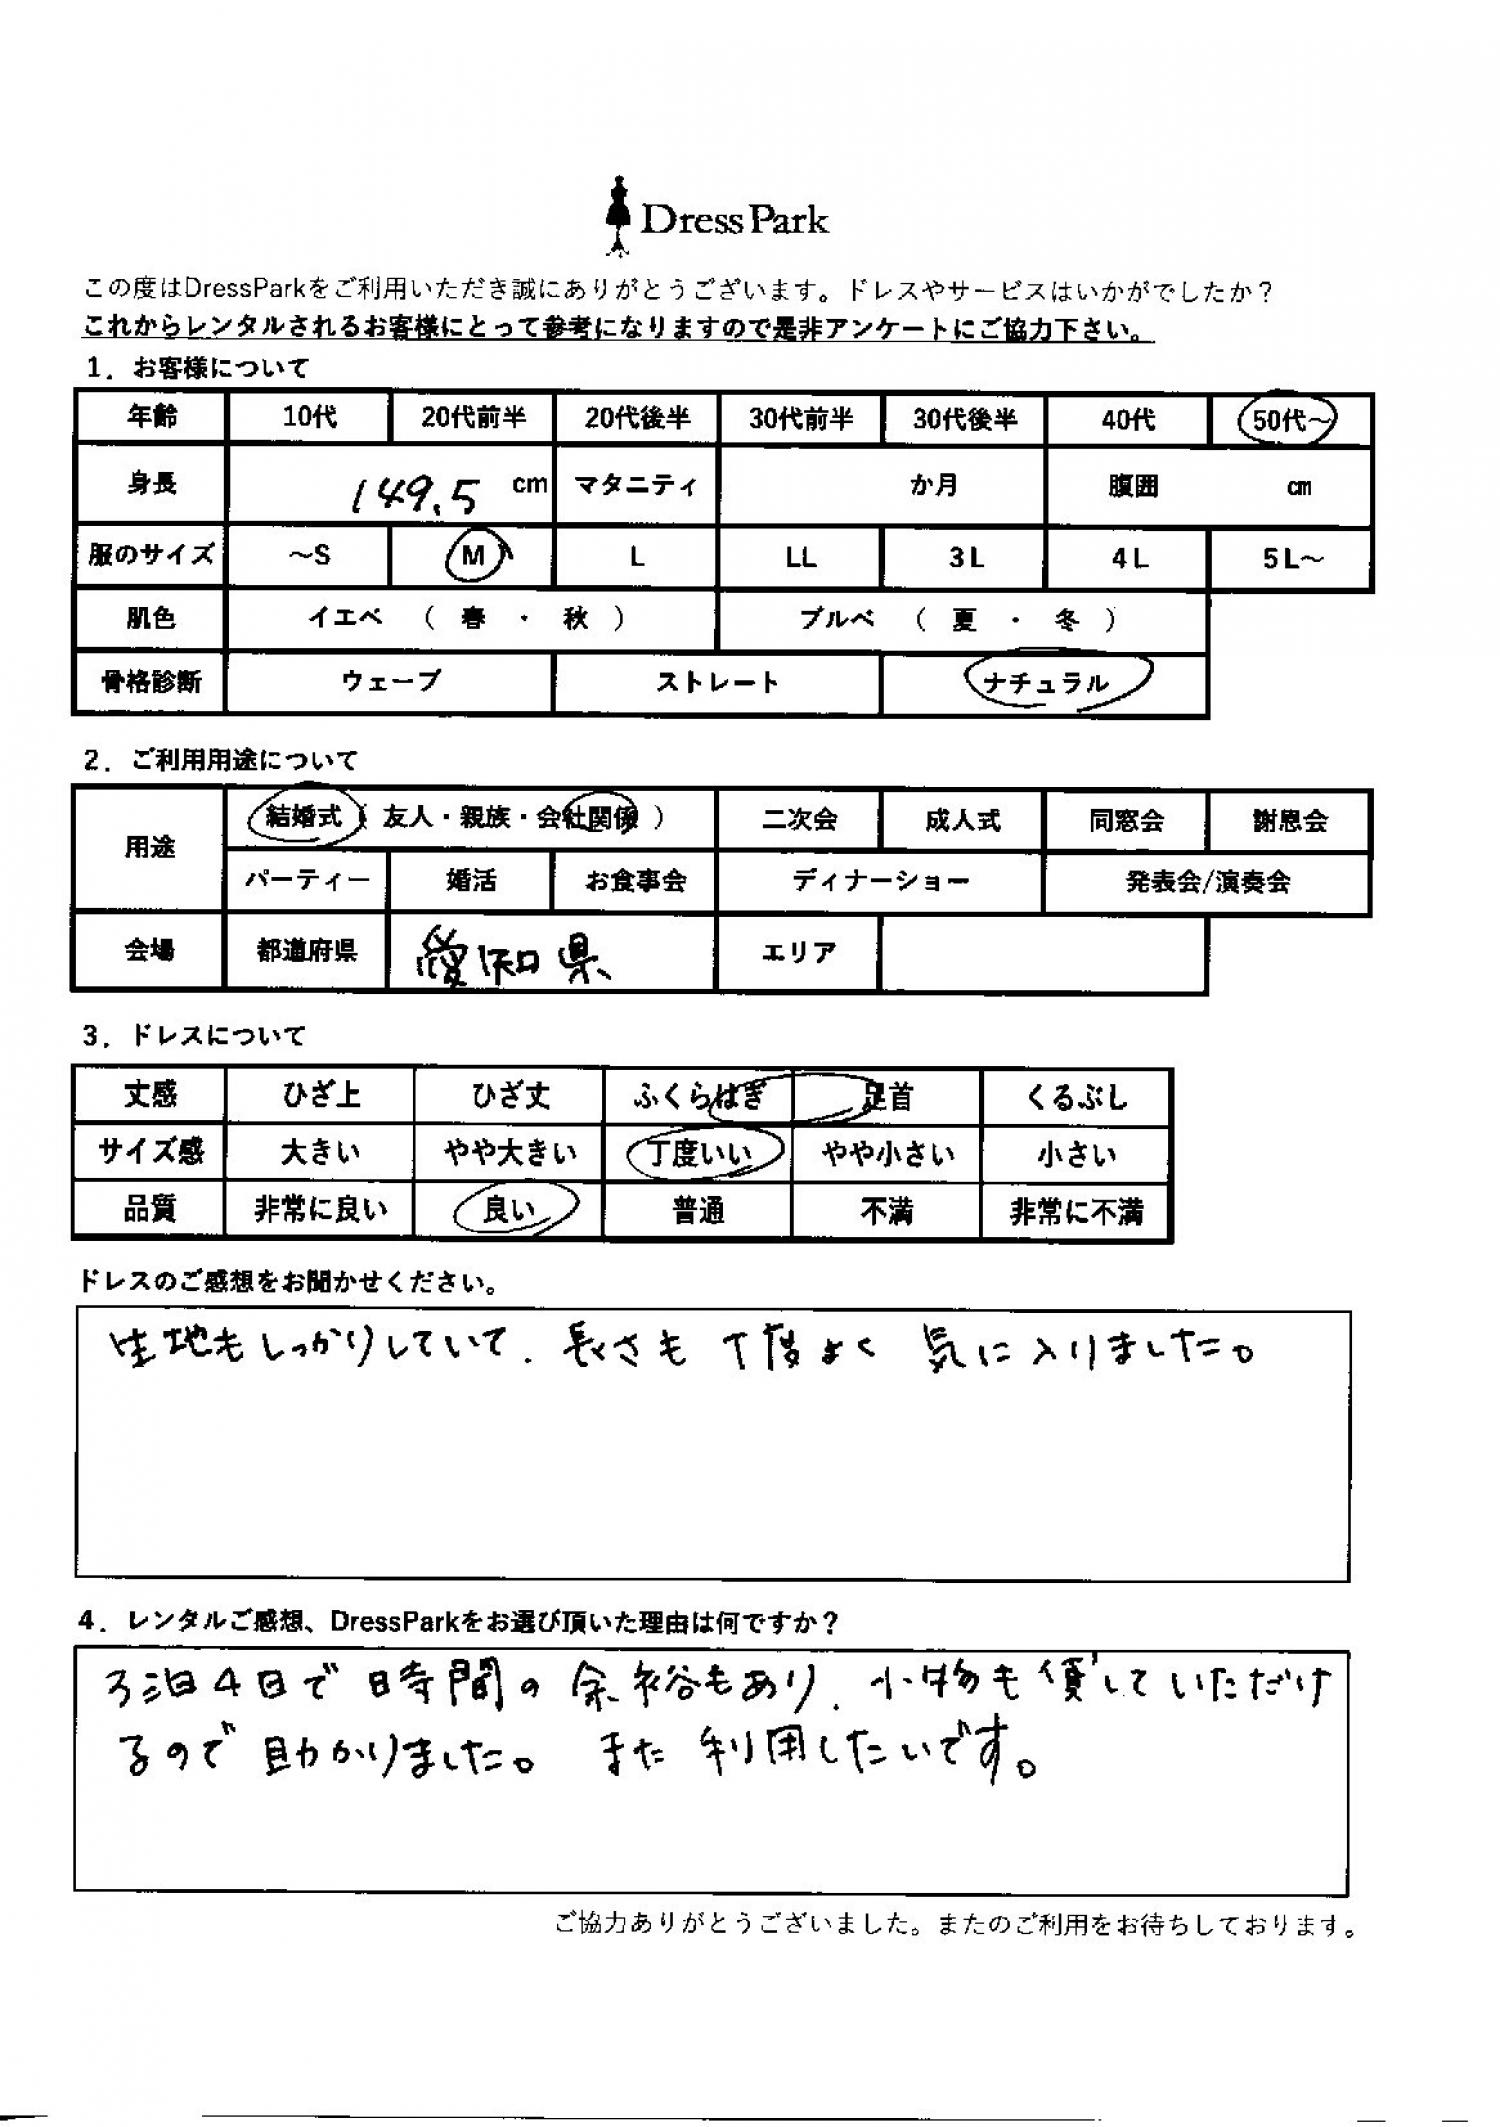 DressPark
この度はDressParkをご利用いただき誠にありがとうございます。ドレスやサービスはいかがでしたか？
これからレンタルされるお客様にとって参考になりますので是非アンケートにご協力下さい。
1．お客様について
年齢 10代 20代前半 20代後半 30代前半 30代後半 40代 50代～
身長 149.5 cm マタニティ か月 腹囲 cm
服のサイズ ～S M L LL 3L 4L 5L～
肌色 イエベ （ 春 ・ 秋 ） ブルベ （ 夏 ・ 冬 ）
骨格診断 ウェーブ ストレート ナチュラル
2．ご利用用途について
用途 結婚式（ 友人・親族・会社関係 ） 二次会 成人式 同窓会 謝恩会
パーティー 婚活 お食事会 ディナーショー 発表会/演奏会
会場 都道府県 愛知県 エリア
3．ドレスについて
丈感 ひざ上 ひざ丈 ふくらはぎ 足首 くるぶし
サイズ感 大きい やや大きい 丁度いい やや小さい 小さい
品質 非常に良い 良い 普通 不満 非常に不満
ドレスのご感想をお聞かせください。
生地もしっかりしていて、長さも丁度よく 気に入りました。
4．レンタルご感想、DressParkをお選び頂いた理由は何ですか？
3泊4日で時間の余裕もあり、小物も貸していただけ
るので助かりました。 また利用したいです。
ご協力ありがとうございました。またのご利用をお待ちしております。